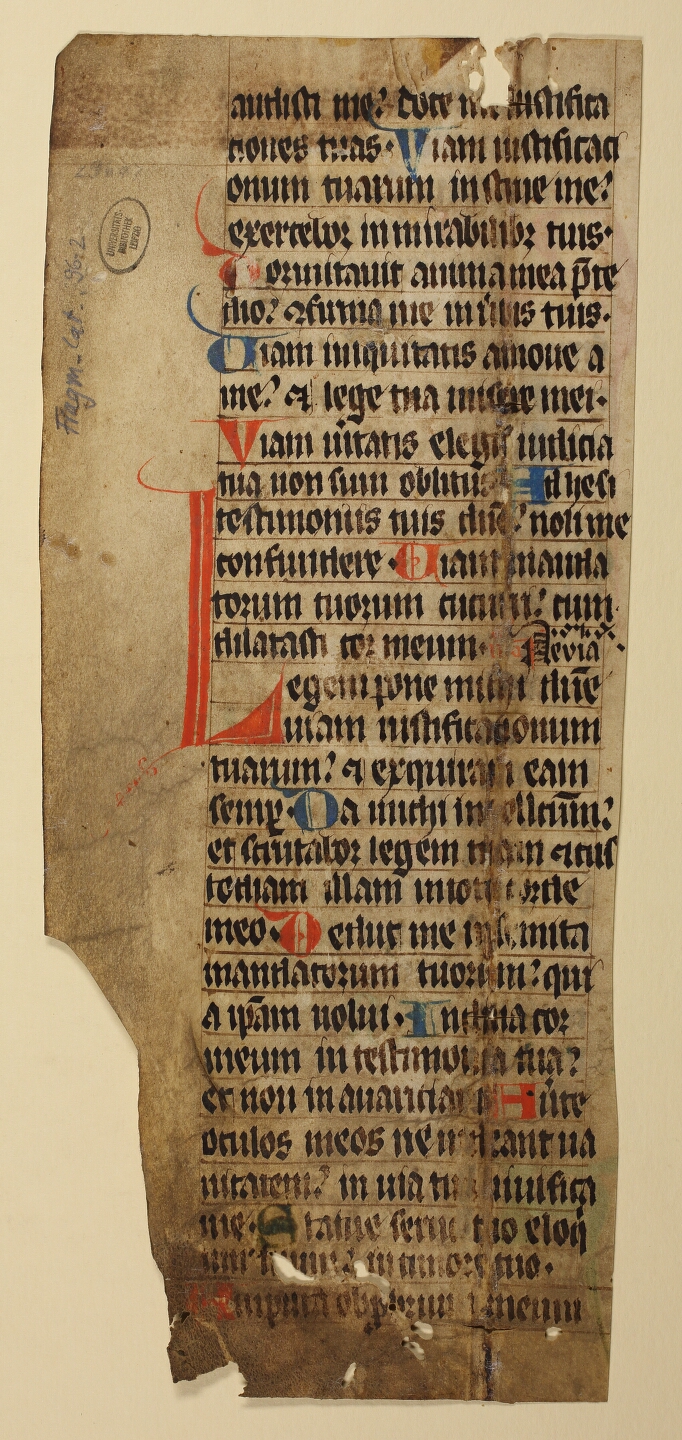 audisti me? doce me iustifica
tiones tuas. Viam iustificaci
onum tuarum instrue me?
exercebor in mirabilibz tuis.
Dormitauit anima mea p̄re
dio? confirma me in ūbis tuis.
Uiam iniquitatis amoue a
me? et lege tua miserere mei.
Viam ūitatis elegi? iudicia
tua non sum oblitus. Adhesi
testimoniis tuis dn̄e? noli me
confundere. Uiam manda
torum tuorum cucurri? cum
dilatasti cor meum.
Aevia
Legem pone michi dn̄e
uiam iustificationum
tuarum? et exquiram eam
semp̱. Da michi intellectū?
et scrutabor legem tuam et cus
todiam illam in toto corde
meo. Deduc me in semita
mandatorum tuorum? quia
a ip̄am uolui. Inclina cor
meum in testimonia tua?
et non in auaritiam Auerte
oculos meos ne uideant ua
nitatem? in uia tua uiuifica
me. Statue seruo tuo eloq̄
um tuum? in timore tuo.
Amputa obprobrium meum
Fragm. Lat. 96:2
UNIVERSITÄTS-
BIBLIOTHEK
LEIPZIG